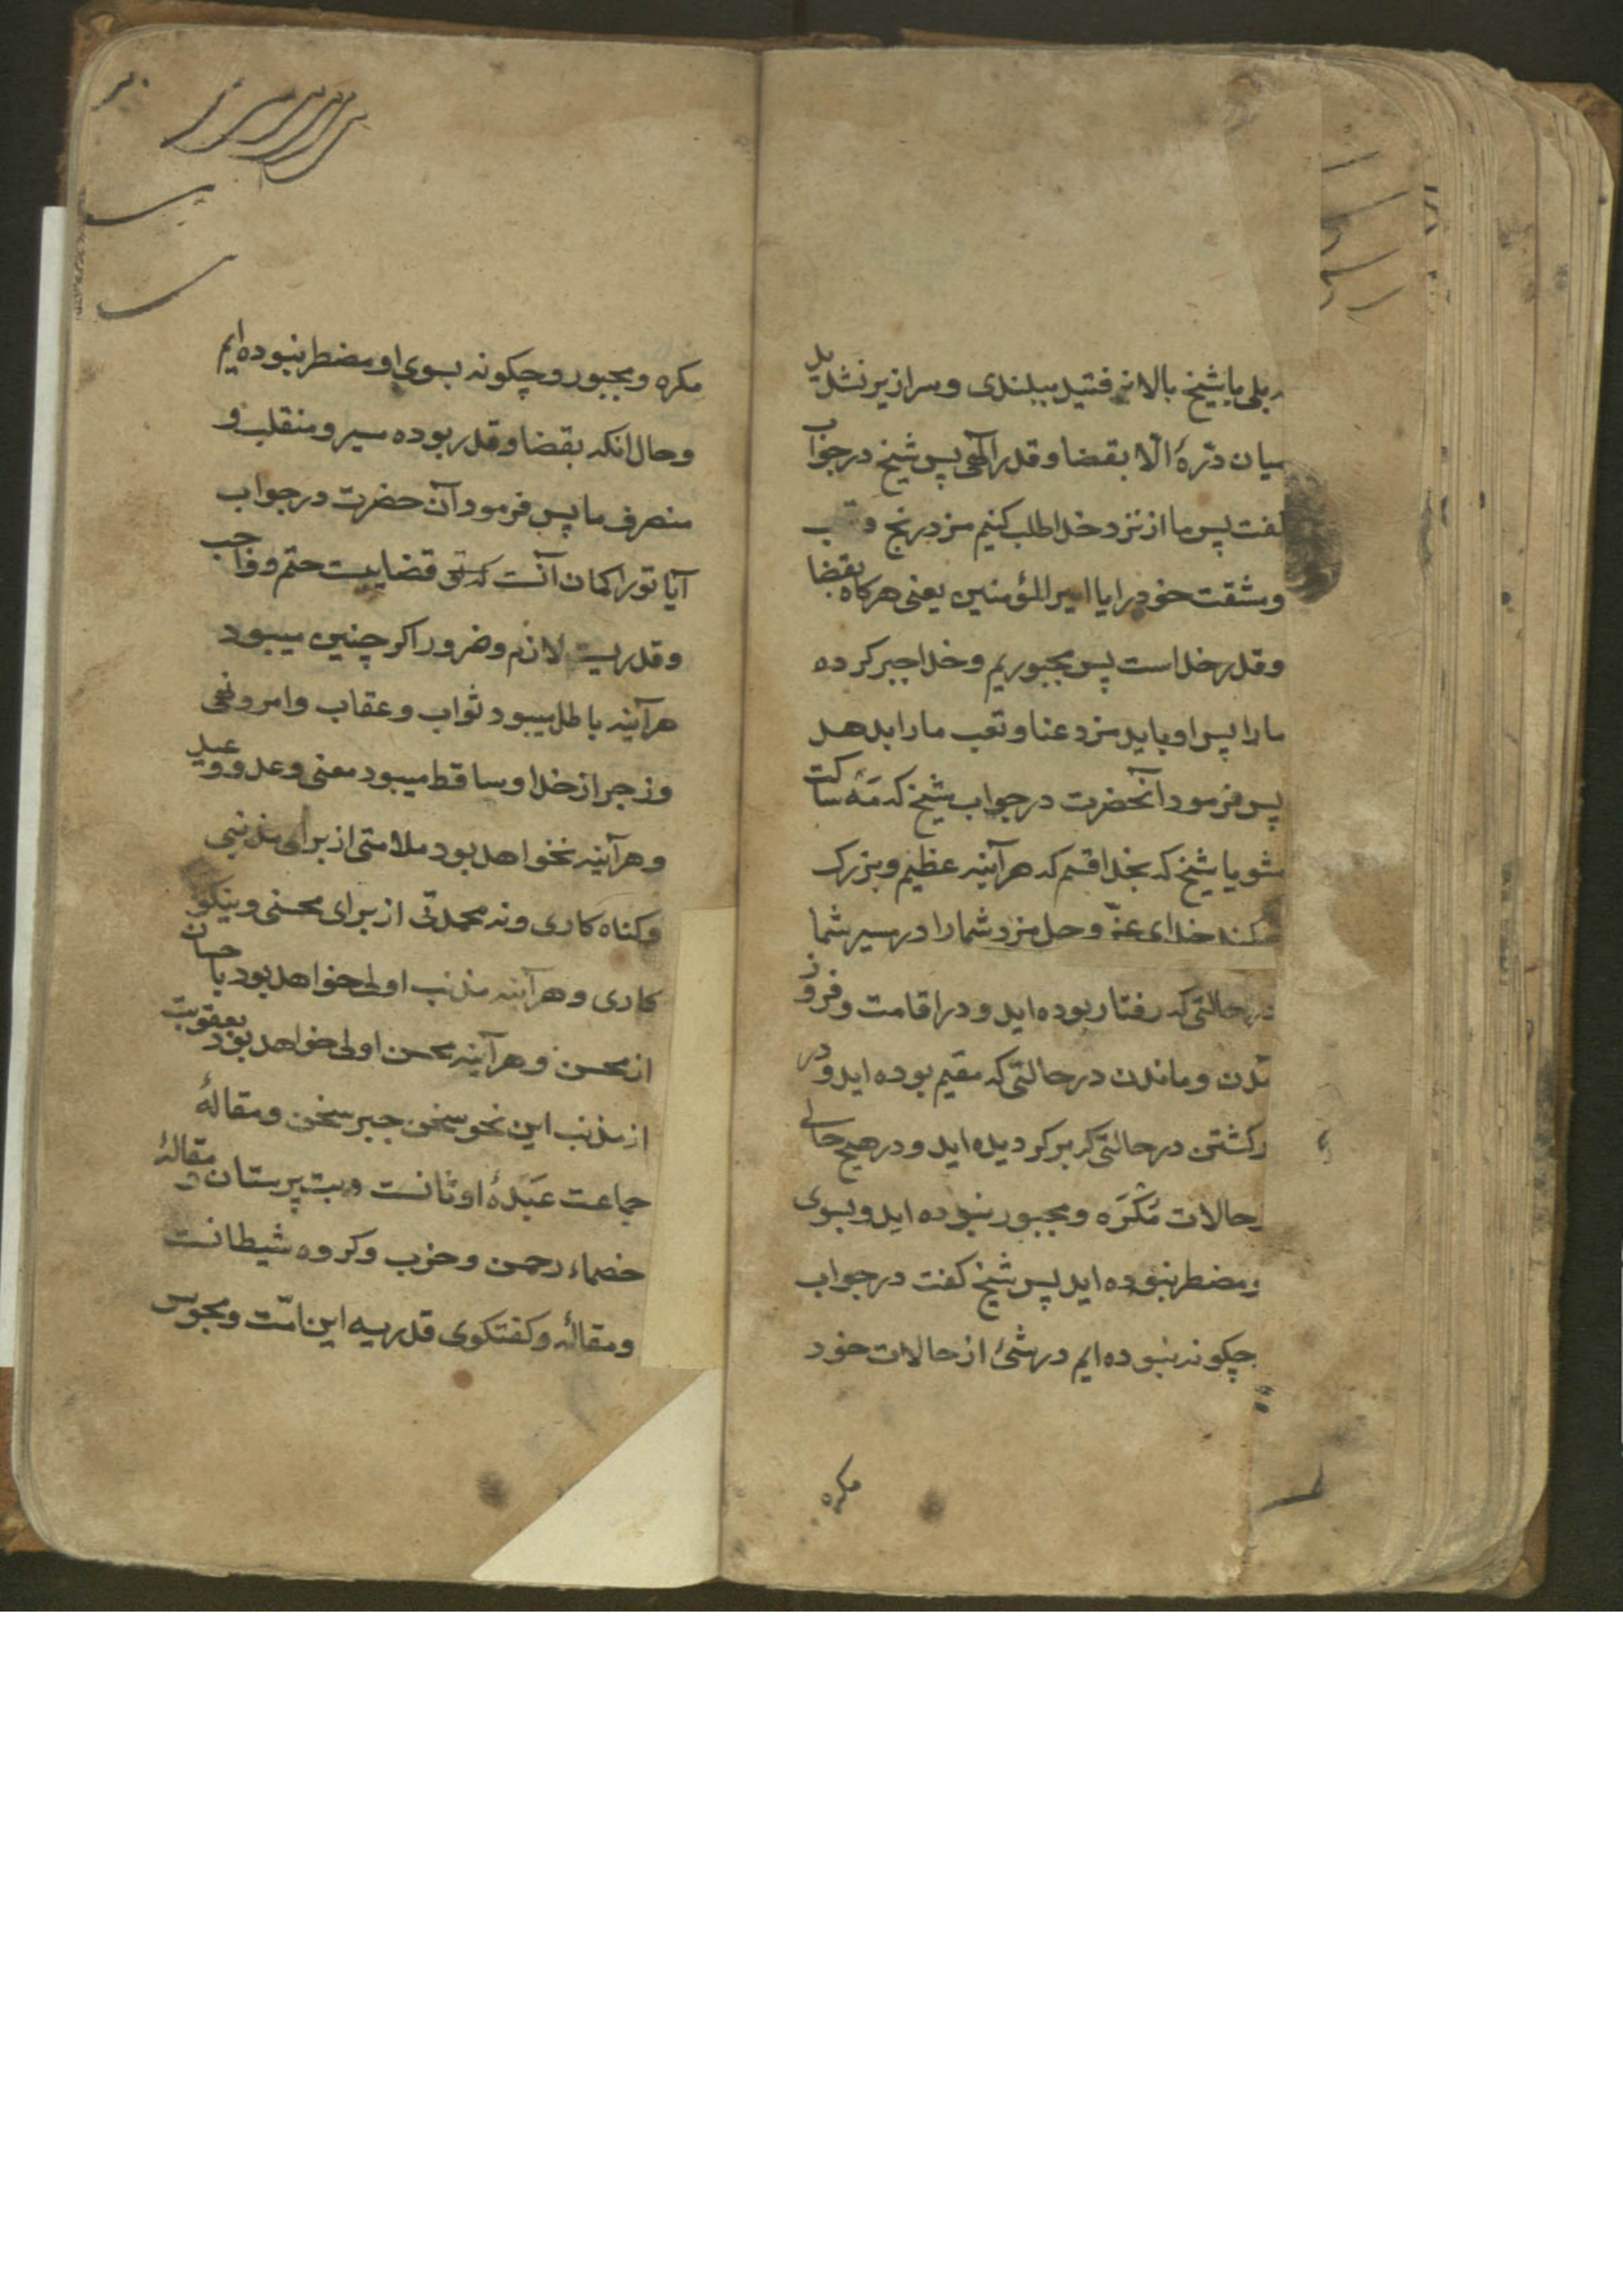 بلی یا شیخ بالا نرفتید ببلندی و سرازیر نشدید
میان درّهٔ الّا بقضا و قدر الهی پس شیخ در جواب
گفت پس ما از نزد خدا طلب کنیم مزد رنج و تعب
و مشقت خود را یا امیر المؤمنین یعنی هرکاه بقضا
و قدر خداست پس مجبوریم و خدا جبر کرده
ما را پس او باید مزد عنا و تعب ما را بدهد
پس فرمود آنحضرت در جواب شیخ که مَهْ ساکت
شو یا شیخ که بخدا قسم که هرآینه عظیم و بزرک
میکند خدای عزّ و جل مزد شما را در مسیر شما
در حالتی که رفتار بوده اید و در اقامت و فرو
و ماندن در حالتی که مقیم بوده اید و در
برکشتن در حالتی که برکردیده اید و در هیچ حالی
حالات مُکْرَه و مجبور نبوده اید و بسوی
مضطر نبوده اید پس شیخ کفت در جواب
چکونه نبوده ایم در شئ از حالات خود
مکره
مکره و مجبور و چکونه بسوی او مضطر نبوده ایم
و حال انکه بقضا و قدر بوده مسیر و منقلب و
منصرف ما پس فرمود آن حضرت در جواب
آیا تو را کمان آنست که قضاییست حتم و واجب
و قدریست لازم و ضرور اکر چنین میبود
هرآینه باطل میبود ثواب و عقاب و امر و نهی
و زجر از خدا و ساقط میبود معنی وعد و وعید
و هرآینه نخواهد بود ملامتی از برای مذنبی
و کناه کاری و نه محمدتی از برای محسنی و نیکو
کاری و هرآینه مذنب اولی خواهد بود باحسان
از محسن و هرآینه محسن اولی خواهد بود بعقوبت
از مذنب این نحو سخن جبر سخن و مقالهٔ
جماعت عَبَدهٔ اوثانست و بت پرستان و مقالهٔ
خصماء رحمن و حزب و کروه شیطانست
و مقالهٔ و کفتکوی قدریه این امّت و مجوس